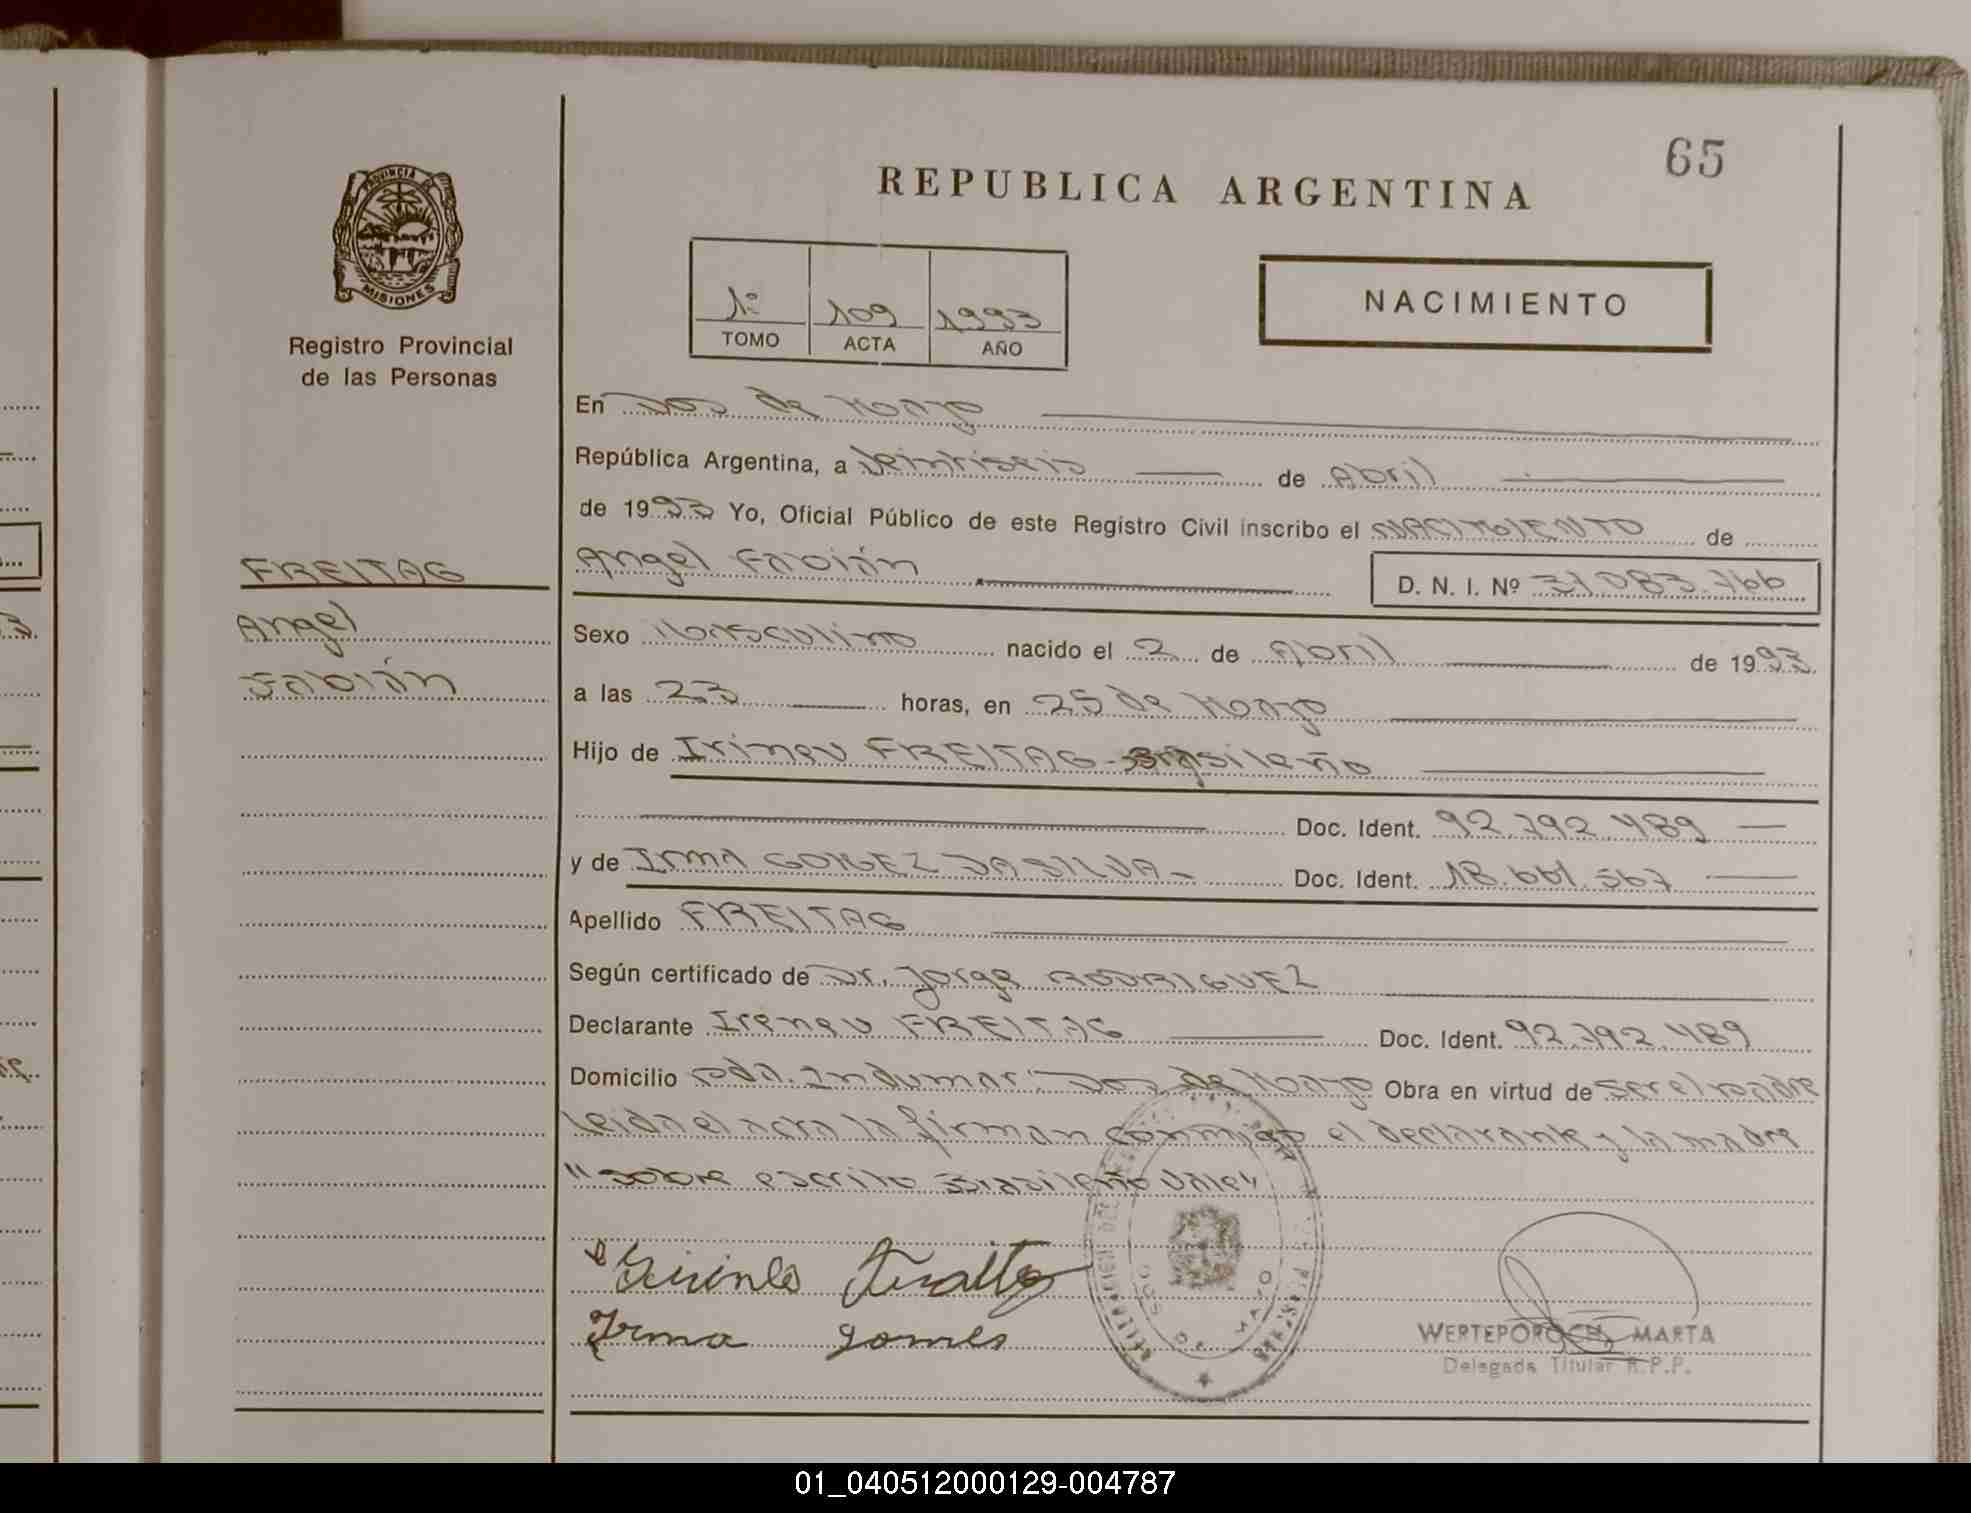 65
REPUBLICA ARGENTINA
PROVINCIA DE
MISIONES
Registro Provincial
de las Personas
1º 109 1993
TOMO ACTA AÑO
NACIMIENTO
En Dos de Mayo
República Argentina, a Veintiseis de Abril
de 1993 Yo, Oficial Público de este Registro Civil inscribo el NACIMIENTO de
Angel Fabián D. N. I. Nº 37.083.766
FREITAG
Angel
Fabián
Sexo Masculino nacido el 2 de Abril de 1993
a las 23 horas, en 25 de Mayo
Hijo de Irineu FREITAG - Brasileño
Doc. Ident. 92.792.489
y de Irma GOMEZ DA SILVA - Doc. Ident. 18.661.567
Apellido FREITAG
Según certificado de Dr. Jorge RODRIGUEZ
Declarante Ireneu FREITAG Doc. Ident. 92.792.489
Domicilio Pda. Indumar. Dos de Mayo Obra en virtud de ser el padre
Leida el acta la firman conmigo el declarante y la madre
"sobre escrito Brasileño Vale"
Irma Gomes
DOS DE MAYO
WERTEPOROCH, MARTA
Delegada Titular R.P.P.
01_040512000129-004787